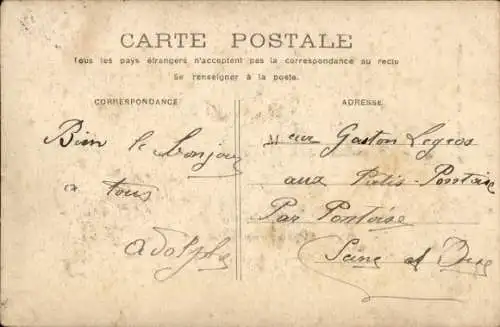 CARTE POSTALE
Tous les pays étrangers n'acceptent pas la correspondance au recto
Se renseigner à la poste.
CORRESPONDANCE
Bien le bonjour
a tous
adolphe
ADRESSE
eur Gaston Legeos
aux Patis-Pontoise
Par Pontoise
Seine et Oise